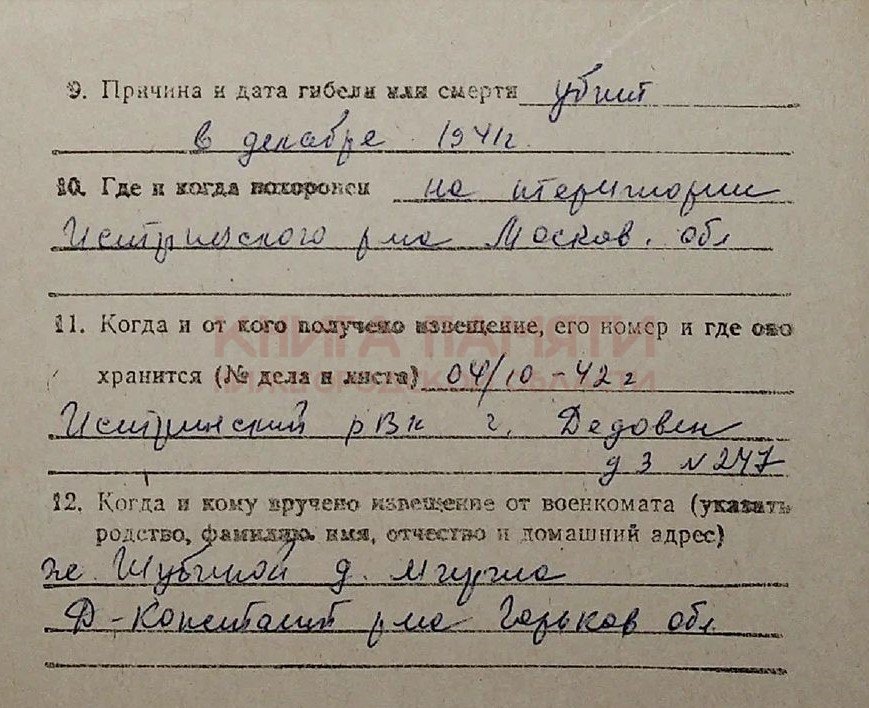 9. Причина и дата гибели или смерти убит
в декабре 1941г.
10. Где и когда похоронен на територии
Истринского р-на Москов. обл
11. Когда и от кого получено извещение, его номер и где оно
КНИГА ПАМЯТИ
хранится (№ дела и листа) 04/10-42 г
НИЖЕГОРОДСКОЙ ОБЛАСТИ
Истринский рвк г. Дедовск
д 3 № 247
12. Когда и кому вручено извещение от военкомата (указать
родство, фамилию, имя, отчество и домашний адрес)
же Шубиной д.
Д-Констант р-на Горьков обл